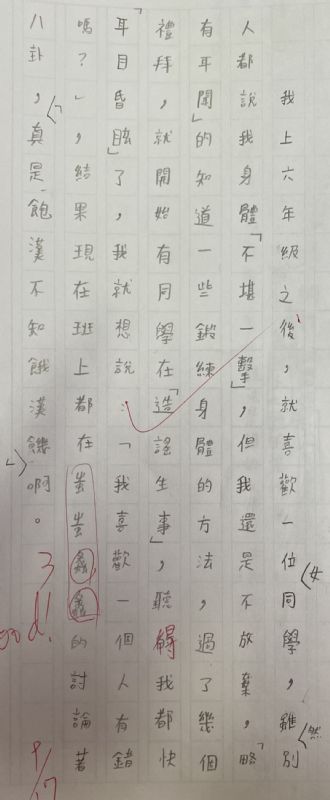 我上六年級之後，就喜歡一位女同學，雖然別
人都說我身體「不堪一擊」，但我還是不放棄，「略
有耳聞」的知道一些鍛練身體的方法，過了幾個
禮拜，就開始有同學在「造謠生事」，聽得我都快
「耳目昏眩」了，我就想說：「我喜歡一個人有錯
嗎？」，結果現在班上都在蚩蚩蠢蠢的討論著
八卦，真是「飽漢不知餓漢饑」啊。
3
Good!
9/17